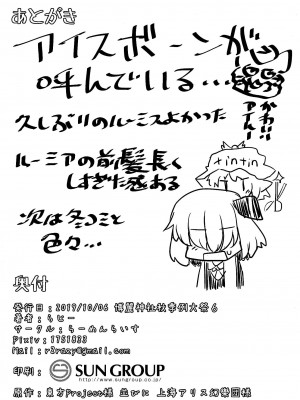 あとがき
アイスボーンが
呼んでいる…
久しぶりのルーミアよかった
かわいい
アイルー
ルーミアの前髪長く
しすぎた感ある
tintin
次は冬コミと
色々…
奥付
発行日:2019/10/06 博麗神社秋季例大祭6
著者:らじー
サークル:らーめんらいす
Pixiv:1781833
Mail:r3razy@gmail.com
印刷:
SUN GROUP
http://www.sungroup.co.jp/
原作:東方Project様 並びに 上海アリス幻樂団様